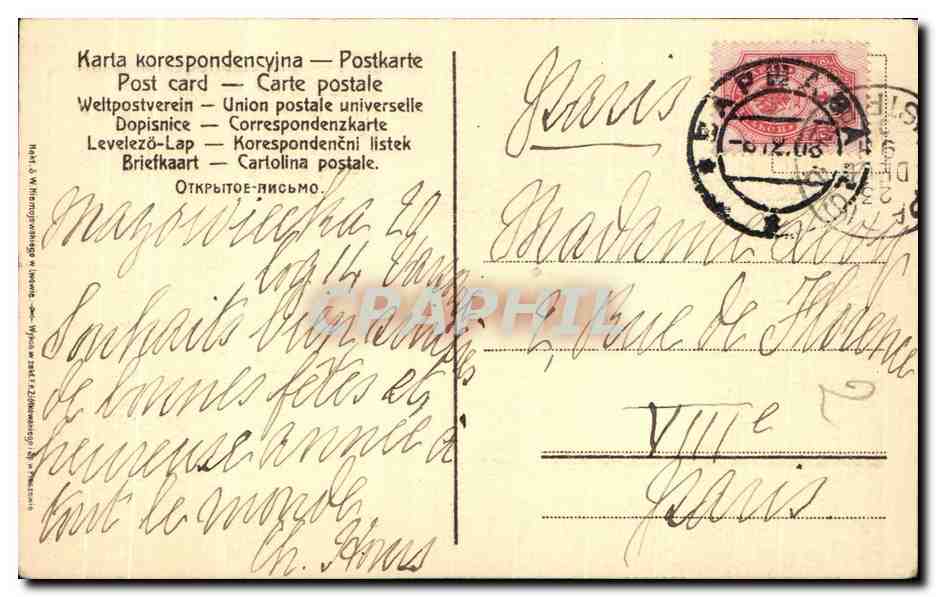 Karta korespondencyjna — Postkarte
Post card — Carte postale
Weltpostverein — Union postale universelle
Dopisnice — Correspondenzkarte
Levelező-Lap — Korespondenčni listek
Briefkaart — Cartolina postale.
Открытое-письмо.
Mazowiecka 20
log 14
Souhaits bien
de bonnes fêtes et
heureuse année à
tout le monde
Ch.
Paris
Madame
2, Rue de Florence
VIIIe
Paris
ВАРШАВА
2
CPARPHIL